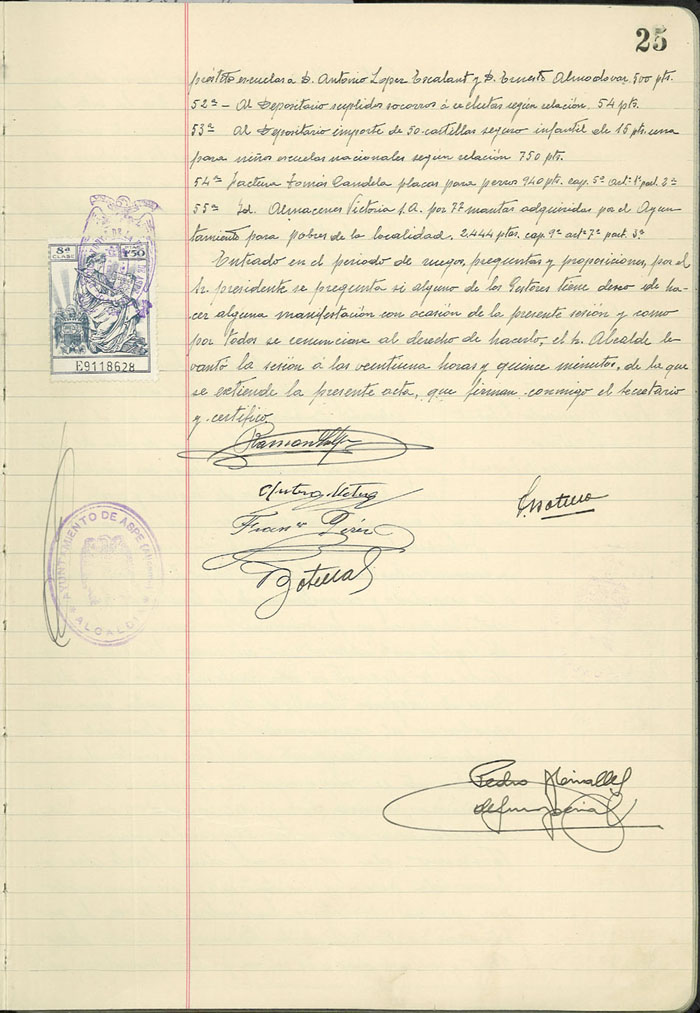 25
escuelas a D. Antonio Lopez Escalant y D. Ernesto Almodovar 500 pts.
52ª - Al Depositario suplidos socorros á reclutas según relación. 54 pts.
53ª Al Depositario importe de 50 cartillas seguro infantil de 15 pts. una
para niños escuelas nacionales según relación 750 pts.
54ª Factura Tomás Candela placas para perros 940 pts. cap. 5º art. 1º part. 2ª
55ª Id. Almacenes Victoria S.A. por 77 mantas adquiridas por el Ayun-
tamiento para pobres de la localidad. 2.444 ptas. cap. 9º art. 7º part. 3ª
Entrado en el periodo de ruegos, preguntas y proposiciones, por el
Sr. presidente se pregunta si alguno de los Gestores tiene deseo de ha-
cer alguna manifestación con ocasión de la presente sesión y como
por todos se renunciase al derecho de hacerlo, el Sr. Alcalde le-
vantó la sesión á las veintiuna horas y quince minutos, de la que
se extiende la presente acta, que firman conmigo el secretario
y certifico
8ª
CLASE
1'50
E9118628
Ramon
Antero
Franco Pérez
Botella
AYUNTAMIENTO DE ASPE
ALCALDIA
Pedro